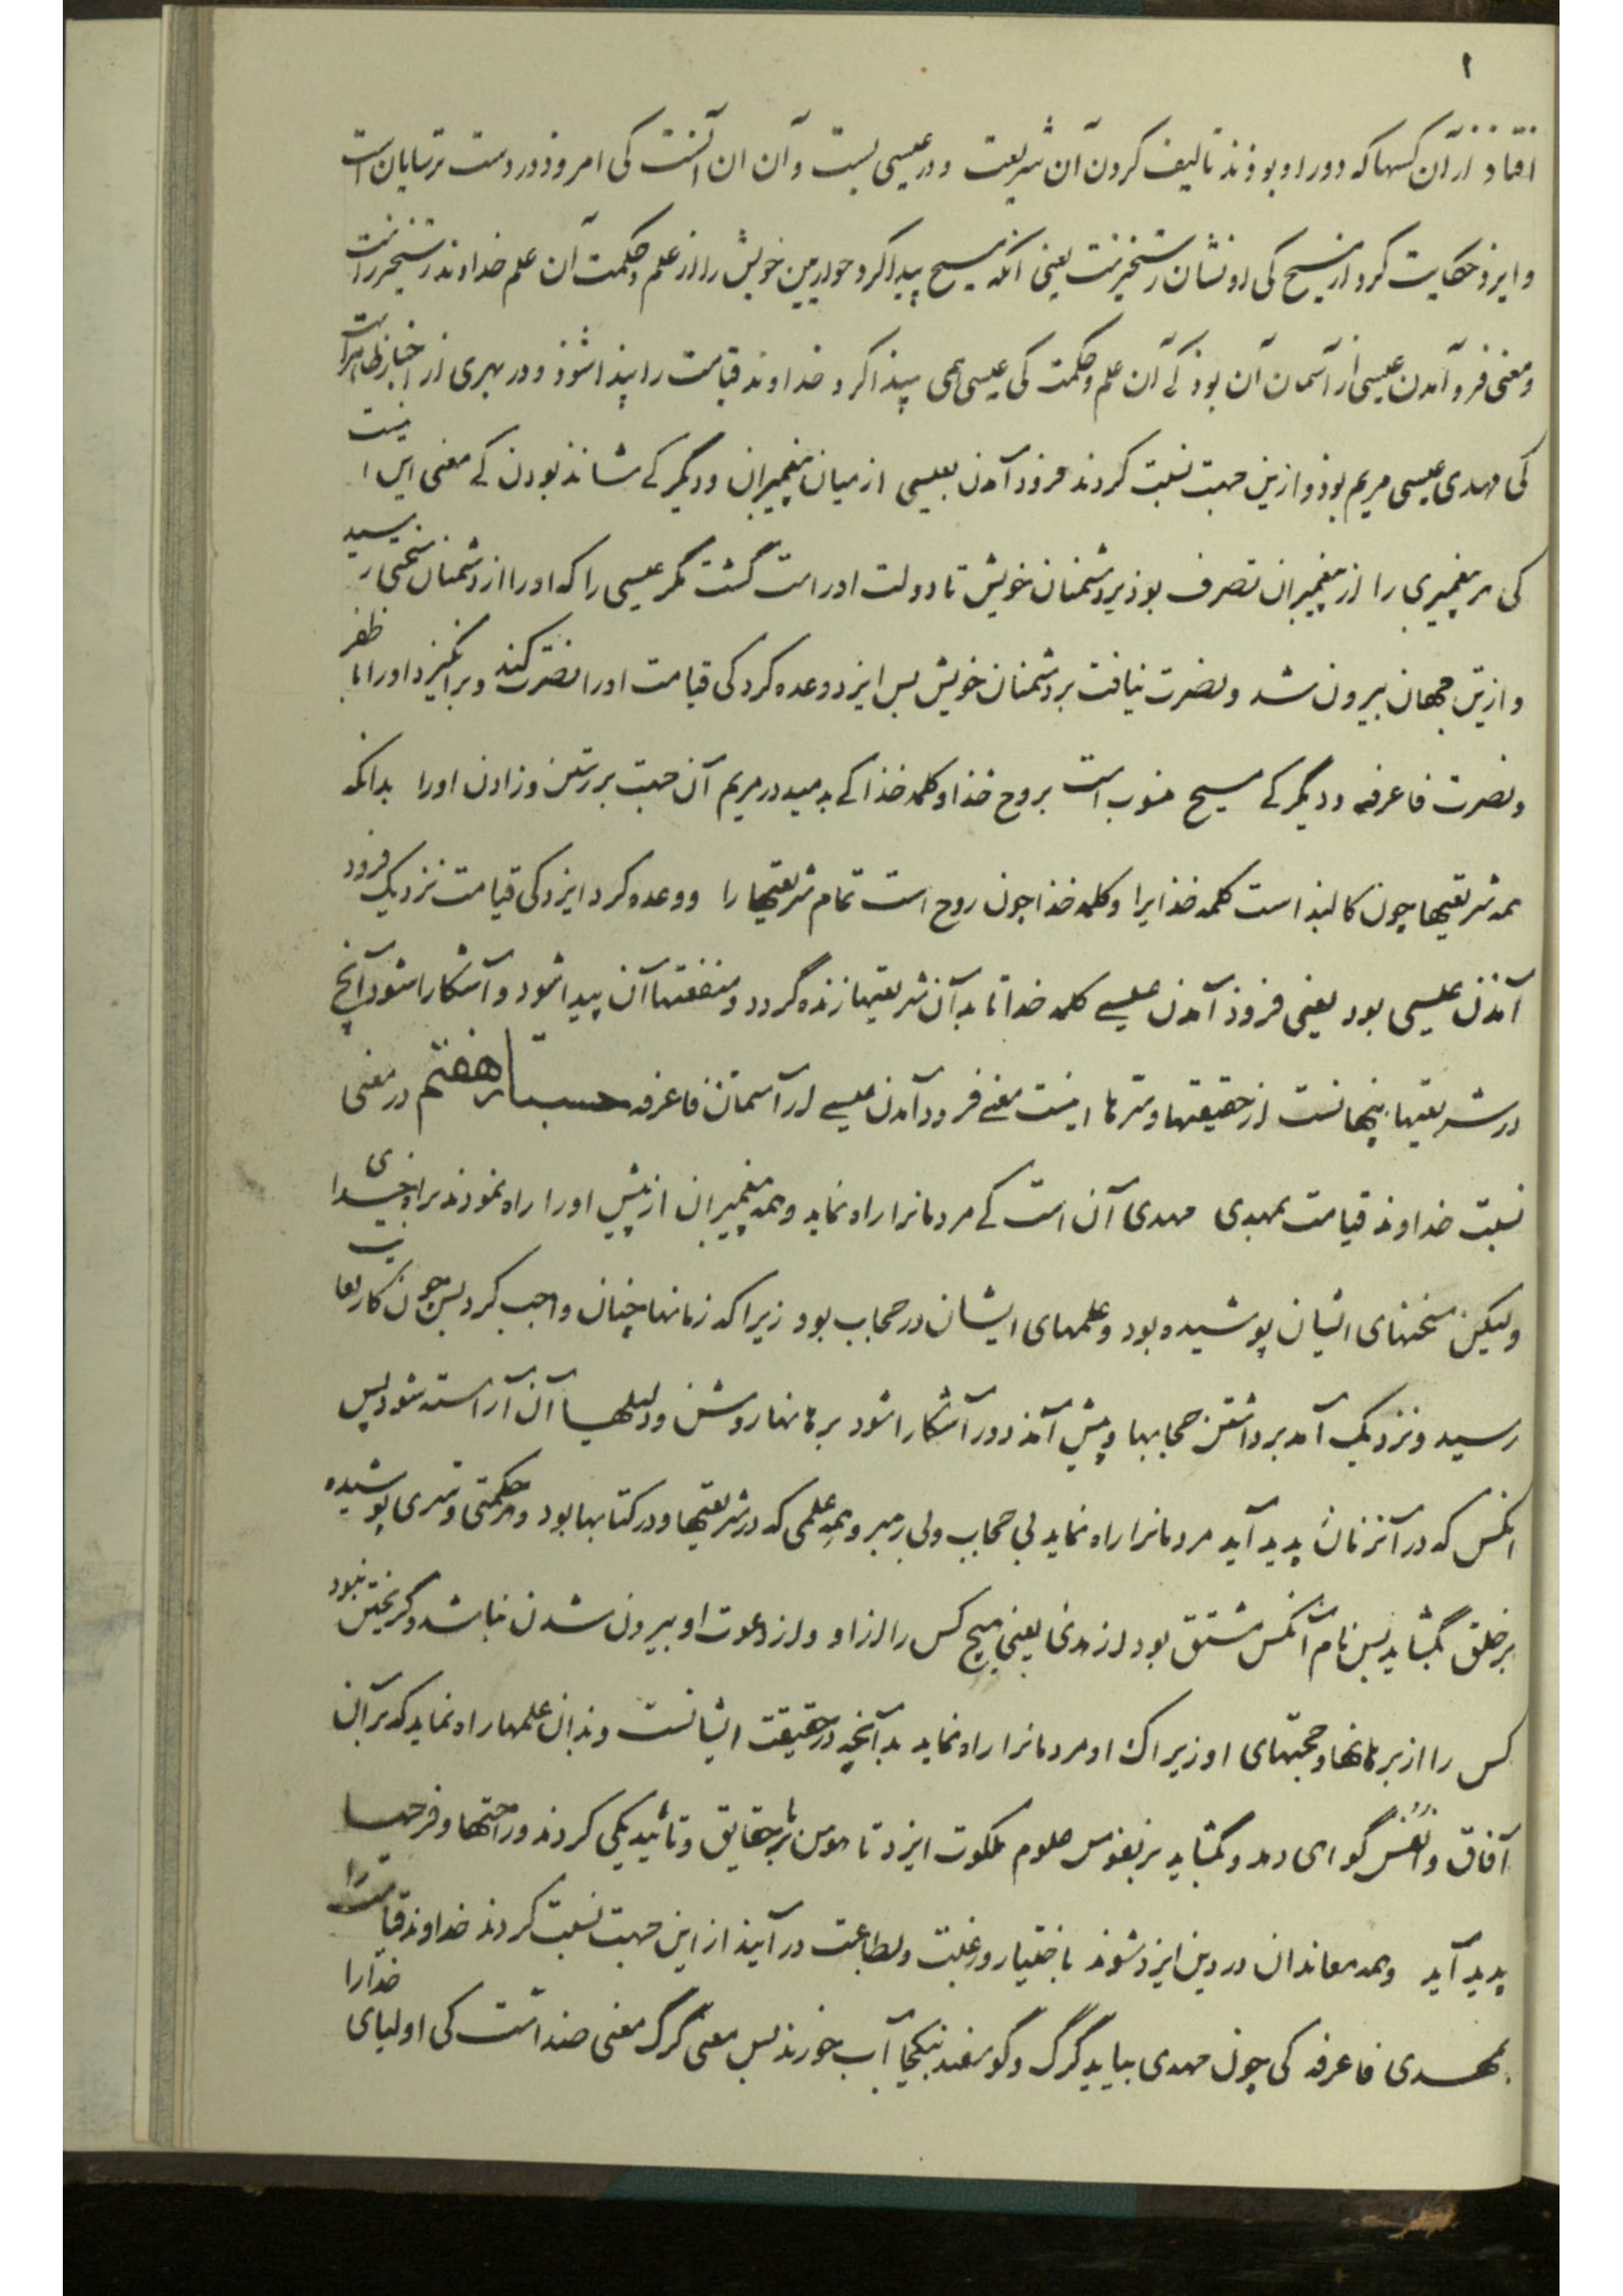 ۱
افتاد از آن کسها که دور او بوذند تالیف کردن آن شریعت و در عیسی بست و آن ان آنست کی امروذ در دست ترسایان است
و ایزذ حکایت کرد از مسیح کی او نشان رستخیزست یعنی انکه مسیح پیدا کرد حواریین خویش را از علم و حکمت آن علم خداوند رستخیز راست
و معنی فروآمدن عیسی از آسمان آن بوذ کی آن علم و حکمت کی عیسی همی پیذا کرد خداوند قیامت را پیذا شوذ و در بهری از اخبار ظاهراست
کی مهدی عیسی مریم بوذ و ازین جهت نسبت کردند فروذ آمدن بعیسی از میان پیغمبران و دیگر کے شاند بودن کے معنی این اینست
کی هر پیغمبری را از پیغمبران تصرف بوذ بر دشمنان خویش تا دولت او راست گشت مگر عیسی را که او را از دشمنان سختی رسید
و ازین جهان بیرون شد و نصرت نیافت بر دشمنان خویش پس ایزد وعده کرد کی قیامت او را نصرت کند و برانگیزد او را با ظفر
و نصرت فاعرفه و دیگر کے مسیح منسوب است بروح خذا و کلمه خذا کے بدمید در مریم آن جهت بر رستن و زادن اورا بدانکه
همه شریعتها چون کالبذ است کلمه خذایرا و کلمه خذا چون روح است تمام شریعتها را و وعده کرد ایزد کی قیامت نزدیک فرود
آمذن عیسی بود یعنی فروذ آمدن عیسے کلمه خدا تا بدآن شریعتها زنده گردد و منفعتها آن پیدا شود و آشکارا شود آنچ
در شریعتها پنهانست از حقیقتها و سرها اینست معنے فرود آمدن عیسے از آسمان فاعرفه جستار هفتم در معنی
نسبت خداوند قیامت بمهدی مهدی آن است کے مردمانرا راه نماید و همه پیغمبران از پیش او را راه نمودند براه خدای
ولیکن سخنهای ایشان پوشیده بود و علمهای ایشان در حجاب بود زیرا که زمانها چنان واجب کرد پس چون کار بغایت
رسید و نزدیک آمد برداشتن حجابها و پیش آمذ دور آشکارا شود برهانها روشن و دلیلهـا آن آراسته شود پس
انکس که در آنزمان پدید آید مردمانرا راه نماید بی حجاب و بی رمز و همه علمی که در شریعتها و در کتابها بود و هر حکمتی و سری پوشیده
بر خلق بگشاید پس نام آنکس مشتق بود از هدی یعنی هیچ کس را از او و از دعوت او بیرون شدن نباشد و گریختن نبود
کس را از برهانها و حجتهای او زیراک او مردمانرا راه نماید بدآنچه در حقیقت ایشانست و بذان علمها راه نماید که بر آن
آفاق و انفس گواهی دهد و بگشاید بر نفوس علوم ملکوت ایزد تا مومن بر حقایق و تائید یکی کردند و راحتها و فرحهـا
پدید آید و همه معاندان در دین ایزد شوند باختیار و رغبت و بطاعت در آیند از این جهت نسبت کردند خداوند قیامت را
بمهـدی فاعرفه کی چون مهدی بیاید گرگ و گوسفند بیکجا آب خورند پس معنی گرگ معنی ضد است کی اولیای خدا را